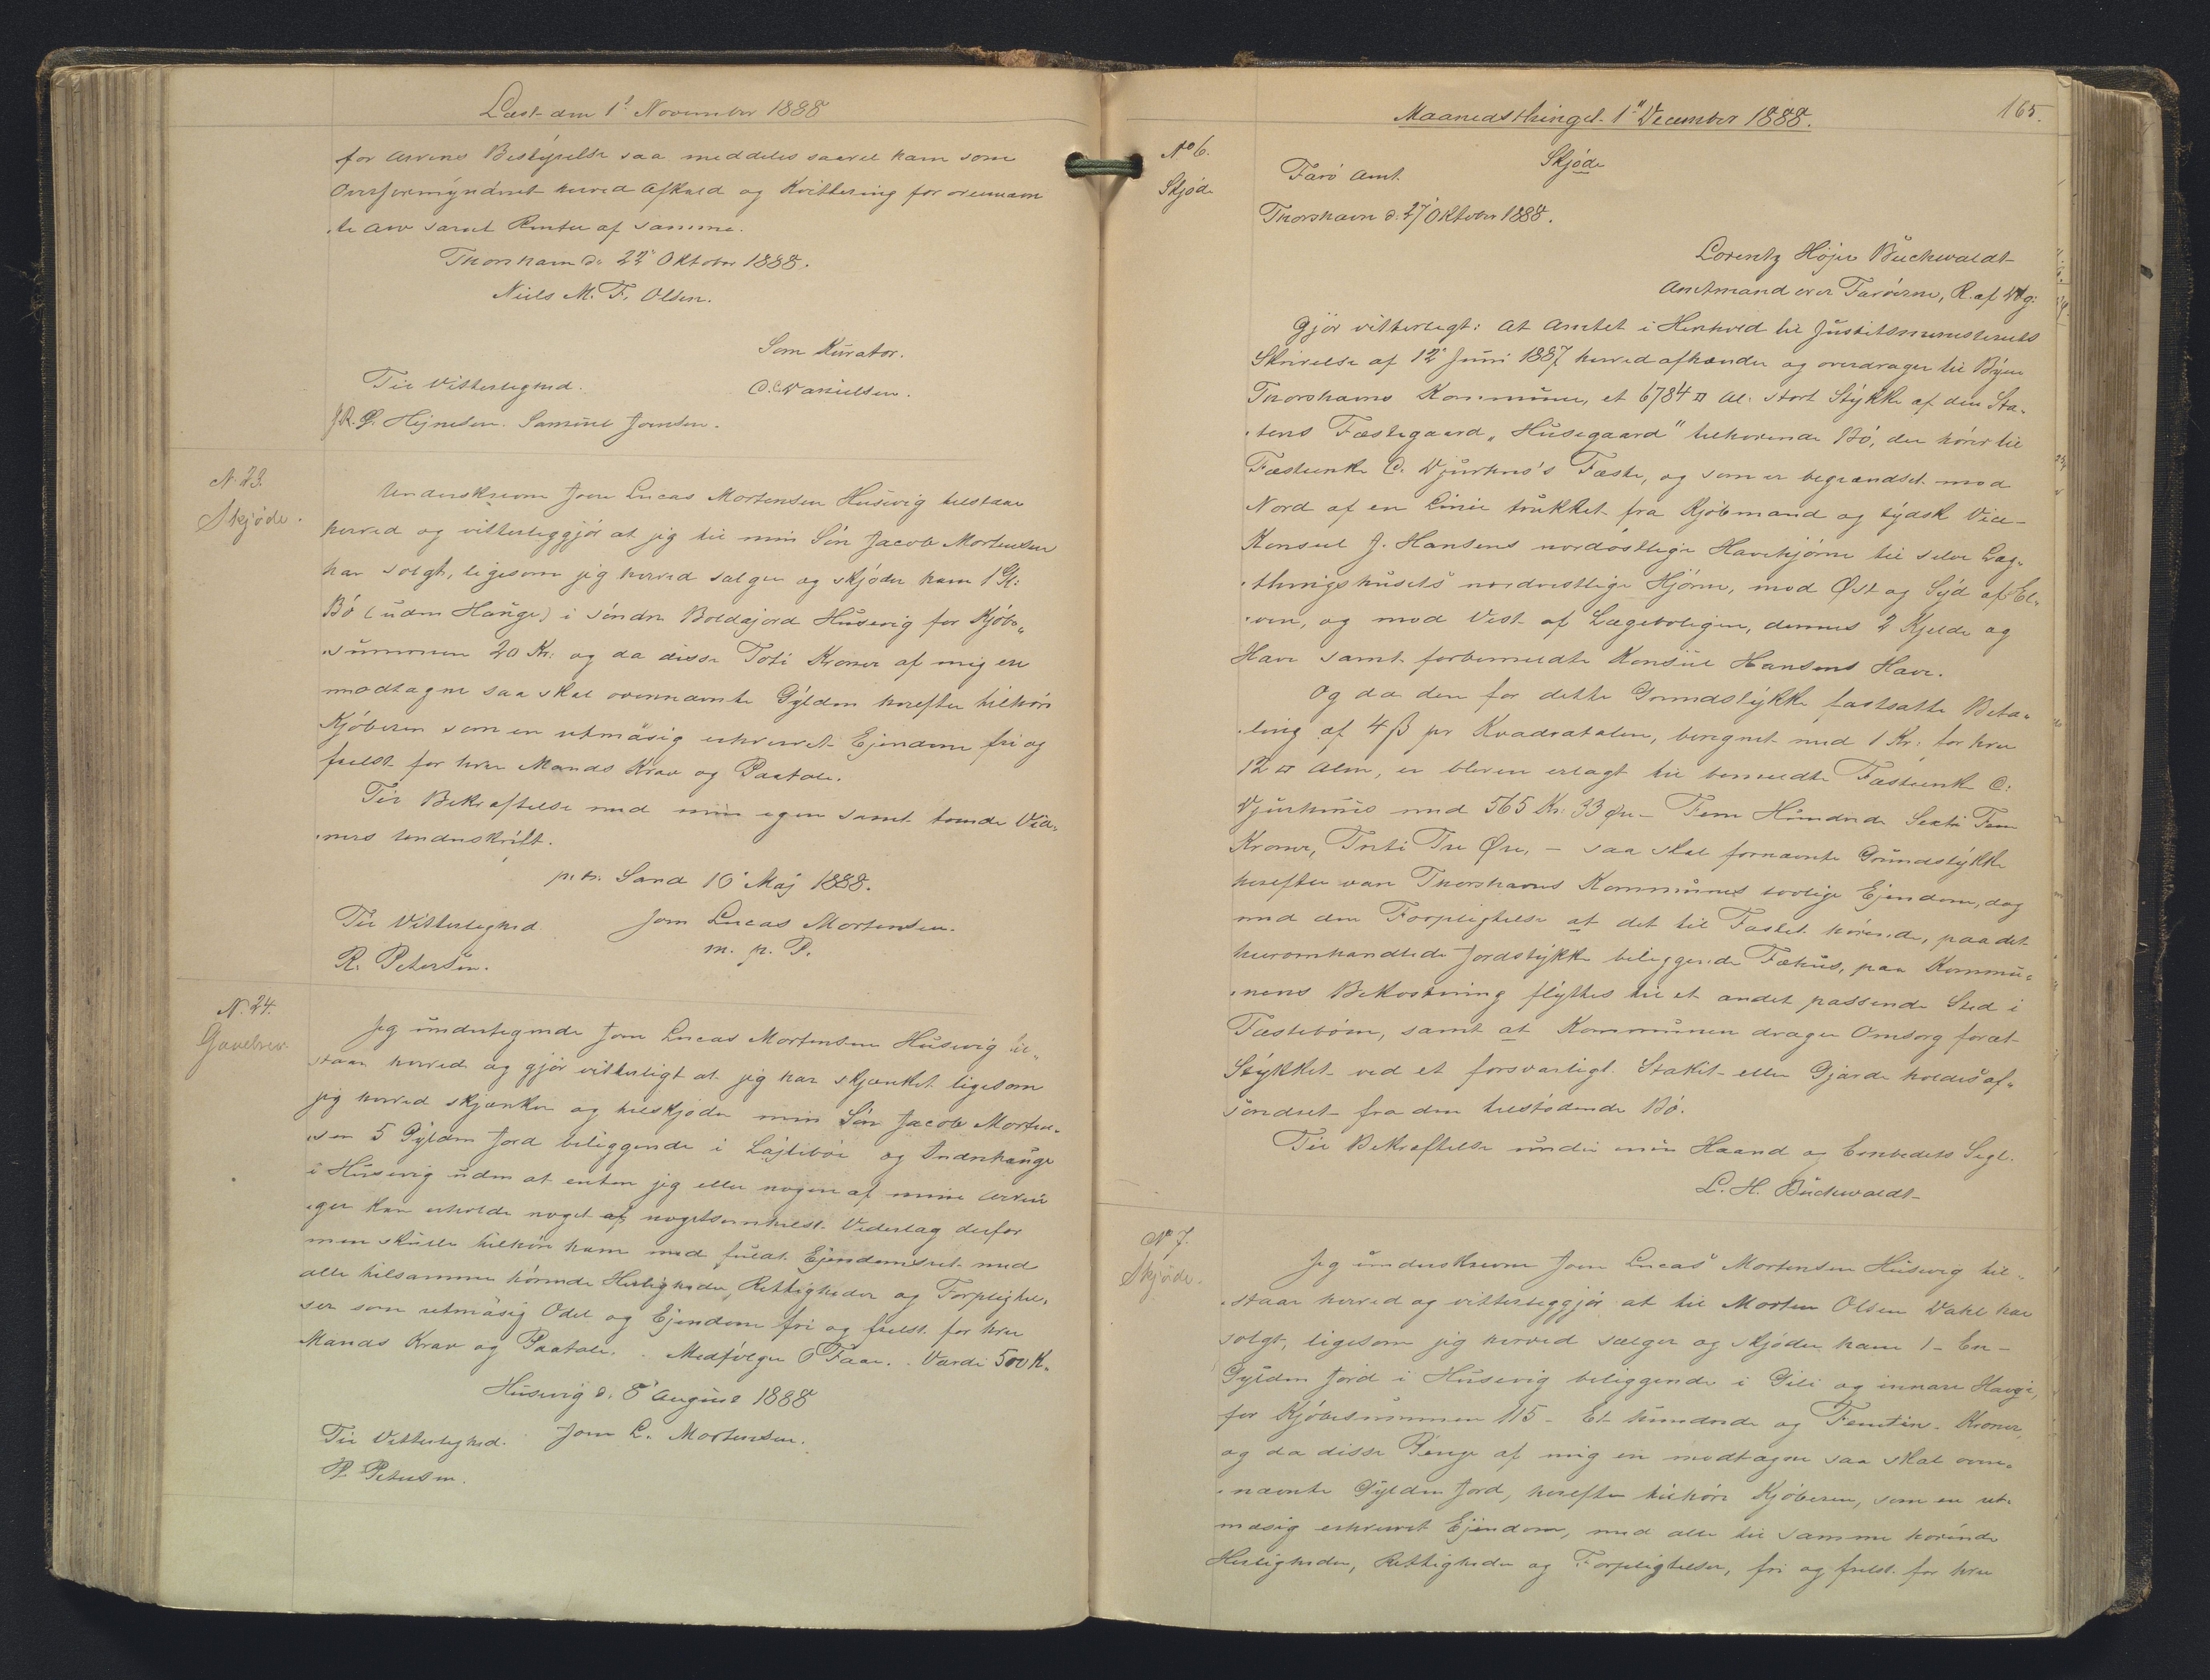 Læst den 1' November 1888
for Arvens Bestyrelse saa meddeles saavel ham som
Overformynderiet herved Afkald og Kvittering for ovennævn
te Arv samt Renter af samme.
Thorshavn d. 22' Oktober 1888.
Niels M. F. Olsen.
Som Kurator.
Til Vitterlighed. C. C. Danielsen.
J. R. P. Hejnesen. Samuel Joensen.
N. 23.
Skjøde.
Underskrevne Joen Lucas Mortensen Húsevig tilstaar
herved og vitterliggjør at jeg til min Søn Jacob Mortensen
har solgt, ligesom jeg herved sælger og skjøder ham 1 Gl:
Bø (uden Hauge) i søndre Boldajord Húsevig for Kjøbe„
„summen 20 Kr: og da disse Toti Kroner af mig ere
modtagne saa skal ovennævnte Gylden herefter tilhøre
Kjøberen som en retmæsig erhvervet Ejendom fri og
frelst for hver Mands Krav og Paatale.
Til Bekræftelse med min egen samt tvende Vid„
„ners Underskrift.
p. t. Sand 10' Maj 1888.
Til Vitterlighed Joen Lucas Mortensen.
R. Petersen. m. p. P.
N. 24.
Gavebrev
Jeg undertegnede Joen Lucas Mortensen Húsevig til„
staar herved og gjør vitterligt at jeg har skjænket ligesom
jeg herved skjænker og tilskjøder min Søn Jacob Morten„
„sen 5 Gylden Jord beliggende i Lájtibøi og Indrehauge
i Húsevig uden at enten jeg eller nogen af mine Arvin
„ger kan erholde noget af nogetsomhelst Vederlag derfor
men skulle tilhøre ham med fuldt Ejendomsret med
alle tilsamme hørende Herligheder, Rettigheder og Forpligtel„
ser som retmæsig Odel og Ejendom fri og frelst for hver
Mands Krav og Paatale. Medfølger 6 Faar. Værdi 500 K.
Húsevig d. 8' August 1888
Til Vitterlighed. Joen L. Mortensen.
P. Petersen.
165.
Maanedsthinget 1" December 1888.
No 6.
Skjøde
Skjøde
Færø Amt.
Thorshavn d. 27' Oktober 1888.
Lorentz Højer Buchwaldt
Amtmand over Færøerne, R. af Dbg:
Gjør vitterligt: At Amtet i Henhold til Justitsministeriets
Skrivelse af 12' Juni 1887 herved afhænder og overdrager til Byen
Thorshavns Kommune, et 6784 □ Al: stort Stykke af den Sta„
„tens Fæstegaard „Húsegaard" tilhørende Bø, der hører til
Fæsteenke C. Djurhus's Fæste, og som er begrændset mod
Nord af en Linie trukket fra Kjøbmand og tydsk Vice-
Konsul J. Hansens nordøstlige Havehjørne til selve Lag„
„thingshusets nordvestlige Hjørne, mod Øst og Syd af El„
„ven, og mod Vest af Lægeboligen, dennes 2 Kjelde og
Have samt forbemeldte Konsul Hansens Have.
Og da den for dette Grundstykke fastsatte Beta„
„ling af 4 ß pr Kvadratalen, beregnet med 1 Kr: for hver
12 □ Alen, er bleven erlagt til bemeldte Fæsteenke C:
Djurhuus med 565 Kr: 33 Øre - Fem Hundrede Sexti Fem
Kroner, Treti Tre Øre, - saa skal fornævnte Grundstykke
herefter være Thorshavns Kommunes lovlige Ejendom, dog
med den Forpligtelse at det til Fæstet hørende, paa det
heromhandlede Jordstykke beliggende Fæhus, paa Kommu„
„nens Bekostning flyttes til et andet passende Sted i
Fæstebøen, samt at Kommunen drager Omsorg foræt
Stykket ved et forsvarligt Stakit eller Gjærde holdes af„
søndret fra den tilstødende Bø.
Til Bekræftelse under min Haand og Embedets Segl.
L. H. Buchwaldt
No 7.
Skjøde.
Jeg underskrevne Joen Lucas Mortensen Húsevig til„
„staar herved og vitterliggjør at til Morten Olsen Dahl har
solgt, ligesom jeg herved sælger og skjøder ham 1 - En -
Gylden Jord i Húsevig beliggende i Gili og innare Havge,
for Kjøbesummen 115 - Et hundrede og Femten - Kroner,
og da disse Penge af mig ere modtagne saa skal oven„
„nævnte Gylden Jord, herefter tilhøre Kjøberen, som en ret„
mæsig erhvervet Ejendom, med alle til samme hørende
Herligheder, Rettigheder og Forpligtelser, fri og frelst for hver